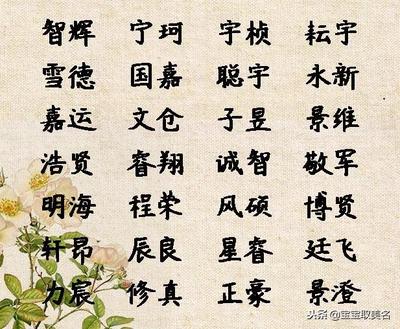 智辉 宁珂 宇桢 耘宇
雪德 国嘉 聪宇 永新
嘉运 文仓 子昱 景维
浩贤 睿翔 诚智 敬军
明海 程荣 风硕 博贤
轩昂 辰良 星睿 廷飞
力宸 修真 正豪 景澄
头条 @宝宝取美名